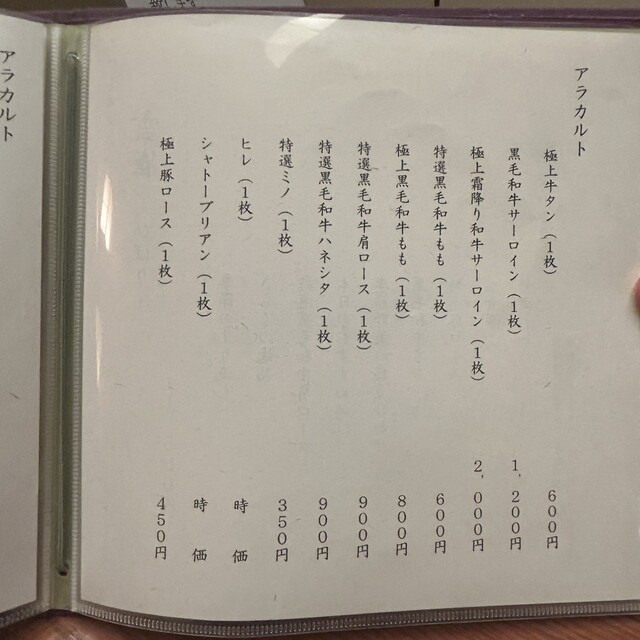 アラカルト
極上牛タン（1枚） 600円
黒毛和牛サーロイン（1枚） 1,200円
極上霜降り和牛サーロイン（1枚） 2,000円
特選黒毛和牛もも（1枚） 600円
極上黒毛和牛もも（1枚） 800円
特選黒毛和牛肩ロース（1枚） 900円
特選黒毛和牛ハネシタ（1枚） 900円
特選ミノ（1枚） 350円
ヒレ（1枚） 時価
シャトーブリアン（1枚） 時価
極上豚ロース（1枚） 450円
アラカルト